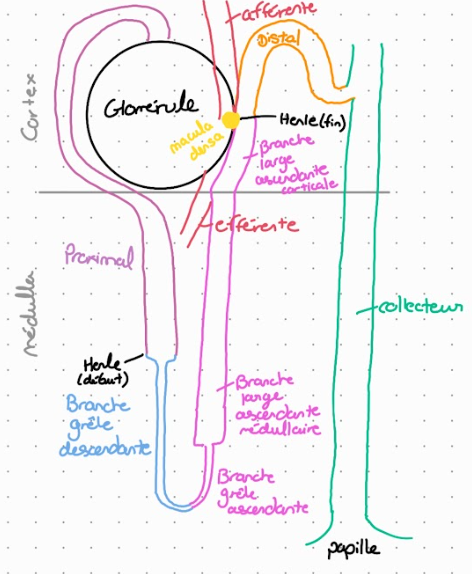 afférente
Distal
Cortex
Glomérule
macula
densa
Henle (fin)
Branche
large
ascendante
corticale
efférente
Proximal
médulla
collecteur
Henle
(début)
Branche
grêle
descendante
Branche
large
ascendante
médullaire
Branche
grêle
ascendante
papille